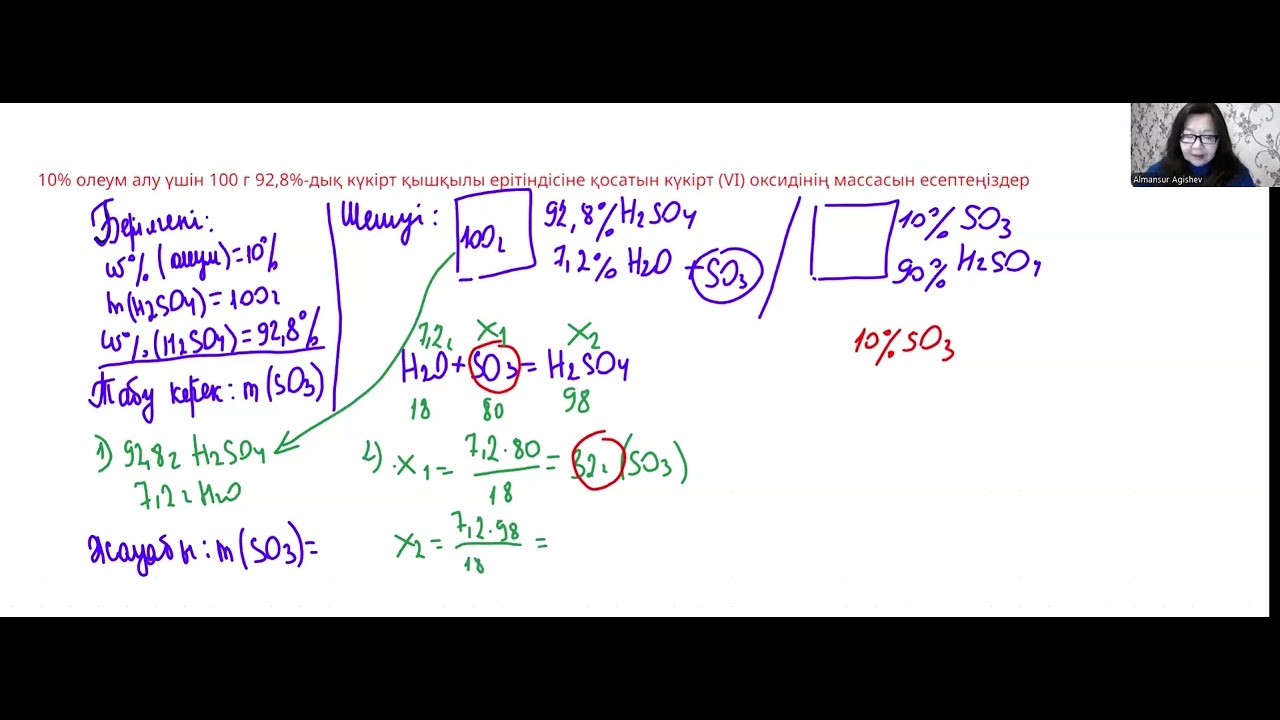 Almansur Agishev
10% олеум алу үшін 100 г 92,8%-дық күкірт қышқылы ерітіндісіне қосатын күкірт (VI) оксидінің массасын есептеңіздер
Берілгені:
w% (олеум)=10%
m(H2SO4)=100г
w%(H2SO4)=92,8%
Табу керек: m(SO3)
Шешуі:
100г
92,8% H2SO4
7,2% H2O + SO3
10% SO3
90% H2SO4
10% SO3
7,2г X1 X2
H2O + SO3 = H2SO4
18 80 98
1) 92,8г H2SO4
7,2г H2O
2) X1 = 7,2·80/18 = 32г (SO3)
X2 = 7,2·98/18 =
Жауабы: m(SO3)=